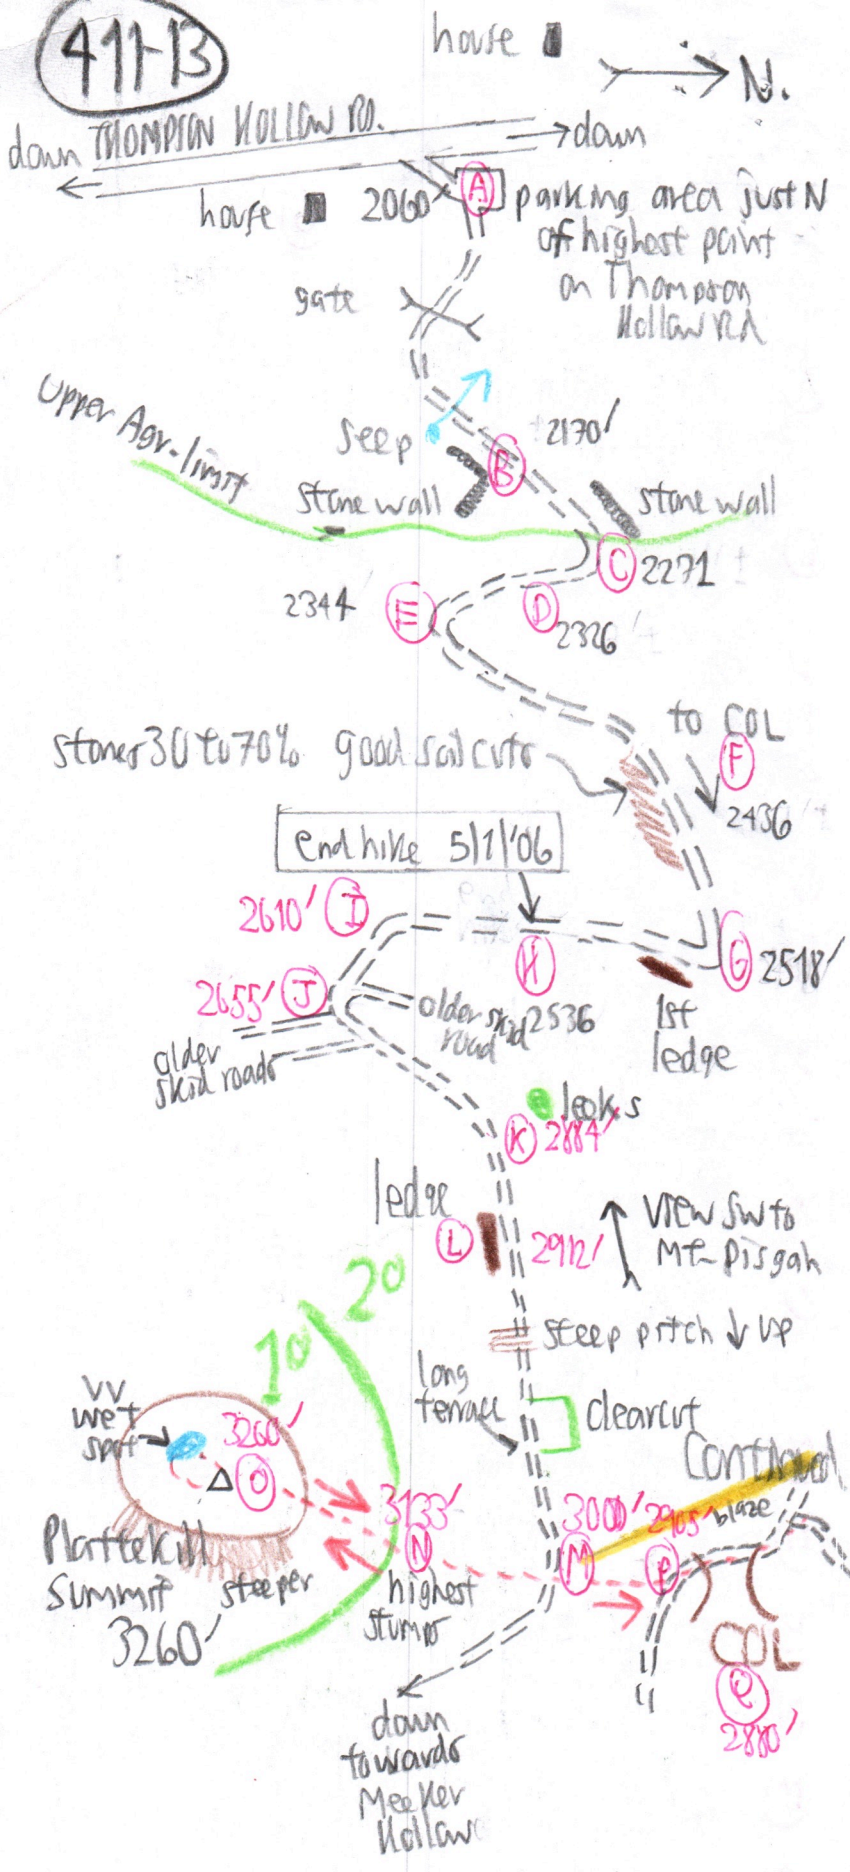 411-13
house
N.
down THOMPSON HOLLOW RD.
down
house
2060'
A
parking area just N
of highest point
on Thompson
Hollow Rd
gate
Upper Agr-limit
seep
B
2170'
stone wall
stone wall
C 2271
2344
E
D
2326
to COL
F
2436
stones 30 to 70% good soil cuts
end hike 5/1/'06
2610' I
H
2536
G 2518'
1st
ledge
2655' J
older skid
road
older
skid roads
leeks
K 2884'
ledge
L
2912'
view SW to
Mt-Pisgah
steep pitch ↓ up
2°
1°
long
terrace
clearcut
VV
wet
spot
3260'
O
3133'
N
highest
stump
3000'
M
2905'
P
blaze
Continued
Plattekill
Summit
3260'
steeper
COL
Q
2880'
down
towards
Meeker
Hollow